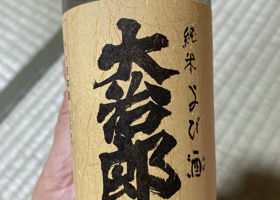 純米よび酒
大治郎